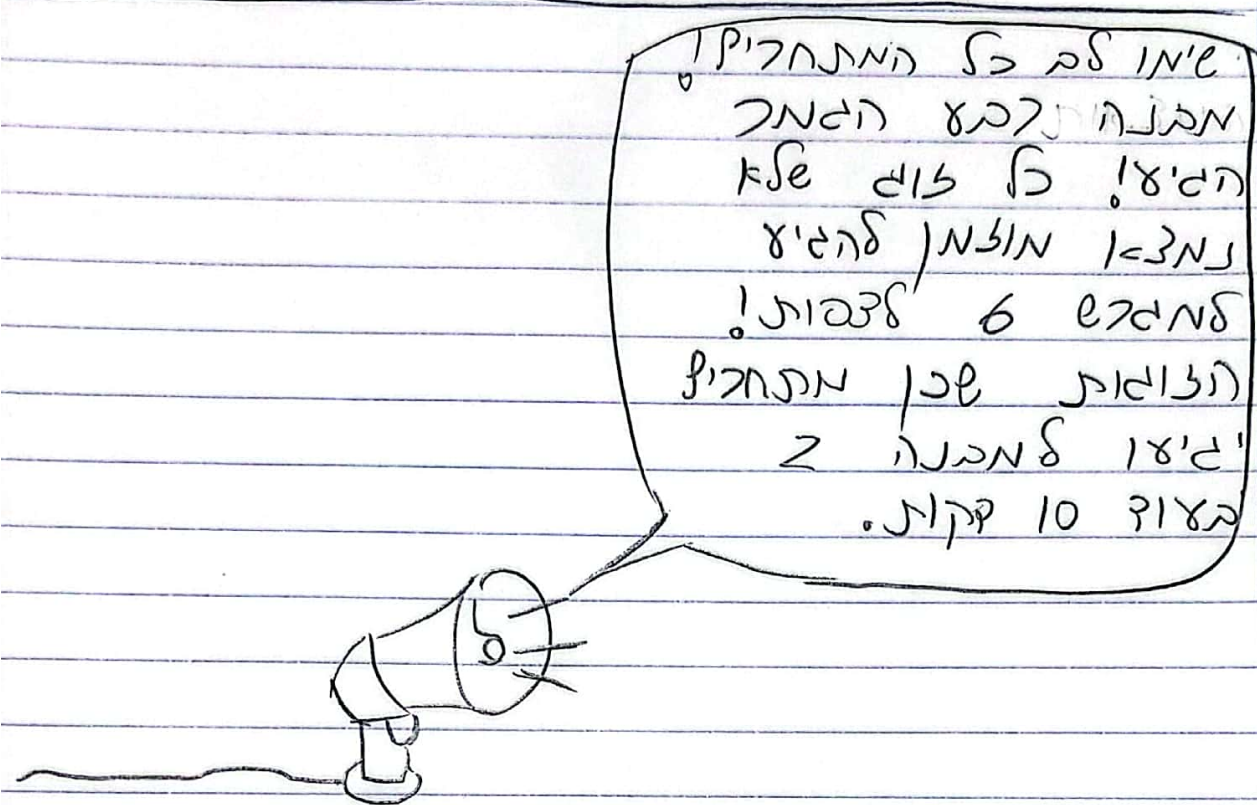 שימו לב כל המתחרים!
מבנה רבע הגמר
הגיע! כל זוג שלא
נמצא מוזמן להגיע
למגרש 6 לצפות!
הזוגות שכן מתחרים
יגיעו למבנה 2
בעוד 10 דקות.